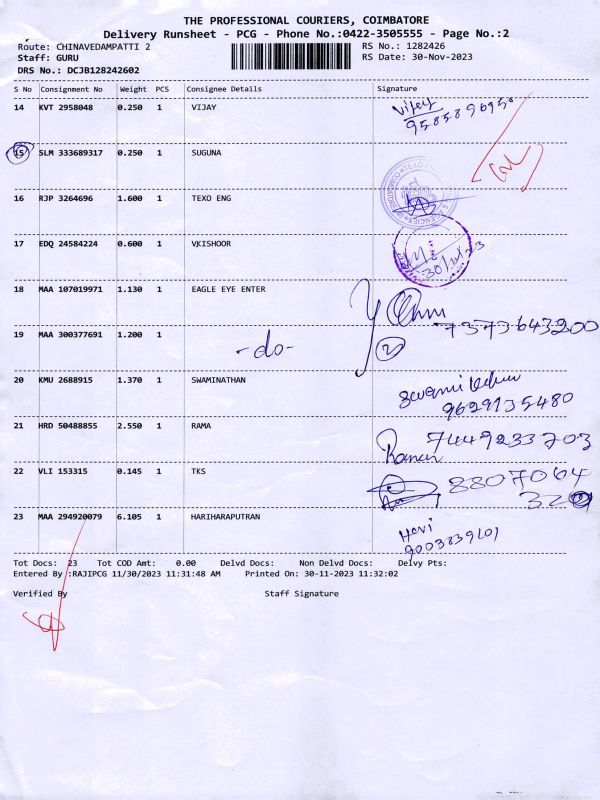 THE PROFESSIONAL COURIERS, COIMBATORE
Delivery Runsheet - PCG - Phone No.:0422-3505555 - Page No.:2
Route: CHINAVEDAMPATTI 2 RS No.: 1282426
Staff: GURU RS Date: 30-Nov-2023
DRS No.: DCJB128242602
S No Consignment No Weight PCS Consignee Details Signature
14 KVT 2958048 0.250 1 VIJAY Vijay
9585896950
15 SLM 333689317 0.250 1 SUGUNA
16 RJP 3264696 1.600 1 TEXO ENG
17 EDQ 24584224 0.600 1 VKISHOOR
30/11/23
18 MAA 107019971 1.130 1 EAGLE EYE ENTER
7373643200
19 MAA 300377691 1.200 1 -do- 2
20 KMU 2688915 1.370 1 SWAMINATHAN
9629135480
21 HRD 50488855 2.550 1 RAMA 7449233703
Raman
22 VLI 153315 0.145 1 TKS 8807064
320
23 MAA 294920079 6.105 1 HARIHARAPUTRAN Hari
9003839201
Tot Docs: 23 Tot COD Amt: 0.00 Delvd Docs: Non Delvd Docs: Delvy Pts:
Entered By :RAJIPCG 11/30/2023 11:31:48 AM Printed On: 30-11-2023 11:32:02
Verified By Staff Signature